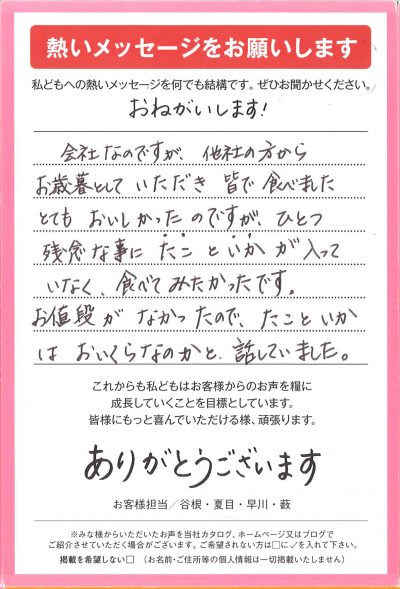 熱いメッセージをお願いします
私どもへの熱いメッセージを何でも結構です。ぜひお聞かせください。
おねがいします!
会社なのですが、他社の方から
お歳暮として いただき 皆で 食べました
とても おいしかったのですが、ひとつ
残念な事に たこ と いか が 入って
いなく、食べて みたかったです。
お値段が なかったので、たこといか
は おいくらなのかと、話していました。
これからも私どもはお客様からのお声を糧に
成長していくことを目標としています。
皆様にもっと喜んでいただける様、頑張ります。
ありがとうございます
お客様担当／谷根・夏目・早川・薮
※みな様からいただいたお声を当社カタログ、ホームページ又はブログで
ご紹介させていただく場合がございます。ご希望されない方は□に✓を入れて下さい。
掲載を希望しない□ （お名前・ご住所等の個人情報は一切掲載いたしません）